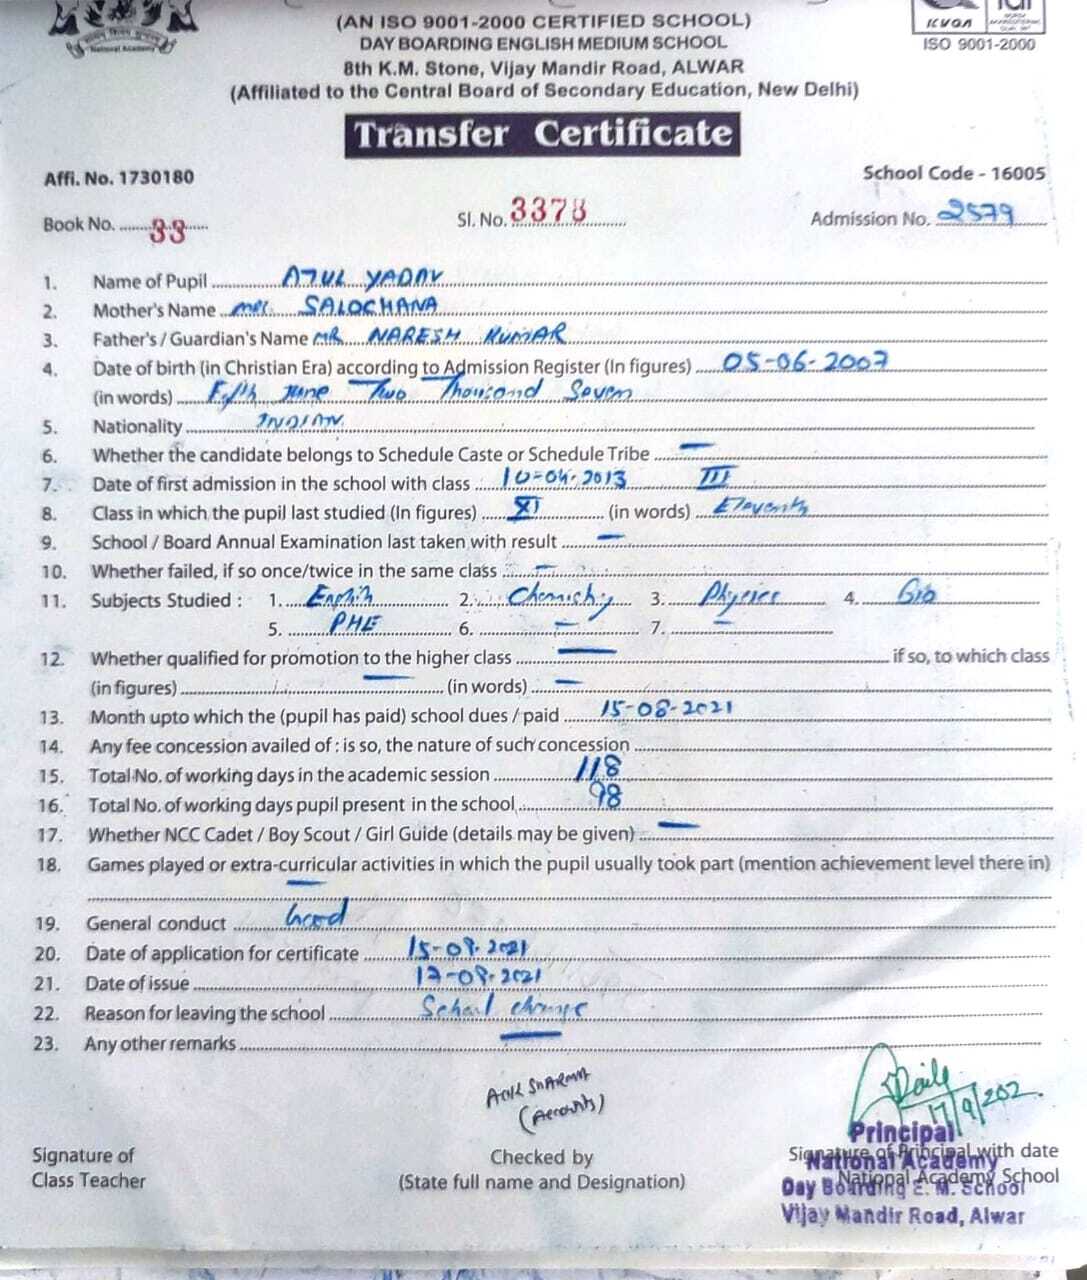 National Academy
(AN ISO 9001-2000 CERTIFIED SCHOOL)
DAY BOARDING ENGLISH MEDIUM SCHOOL
8th K.M. Stone, Vijay Mandir Road, ALWAR
(Affiliated to the Central Board of Secondary Education, New Delhi)
ICVQA
ISO 9001-2000
Transfer Certificate
Affi. No. 1730180 School Code - 16005
Book No. 33 Sl. No. 3378 Admission No. 2579
1. Name of Pupil ATUL YADAV
2. Mother's Name Mrs. SALOCHANA
3. Father's / Guardian's Name MR NARESH KUMAR
4. Date of birth (in Christian Era) according to Admission Register (In figures) 05-06-2007
(in words) Fifth June Two Thousand Seven
5. Nationality INDIAN
6. Whether the candidate belongs to Schedule Caste or Schedule Tribe —
7. Date of first admission in the school with class 10-04-2013 III
8. Class in which the pupil last studied (In figures) XI (in words) Eleventh
9. School / Board Annual Examination last taken with result —
10. Whether failed, if so once/twice in the same class —
11. Subjects Studied : 1. English 2. Chemistry 3. Physics 4. Bio
5. PHE 6. — 7. —
12. Whether qualified for promotion to the higher class — if so, to which class
(in figures) — (in words) —
13. Month upto which the (pupil has paid) school dues / paid 15-08-2021
14. Any fee concession availed of : is so, the nature of such concession
15. Total No. of working days in the academic session 118
16. Total No. of working days pupil present in the school 98
17. Whether NCC Cadet / Boy Scout / Girl Guide (details may be given) —
18. Games played or extra-curricular activities in which the pupil usually took part (mention achievement level there in)
—
19. General conduct Good
20. Date of application for certificate 15-09-2021
21. Date of issue 17-09-2021
22. Reason for leaving the school School change
23. Any other remarks —
SHARMA
(Accounts)
17/9/202
Signature of
Class Teacher
Checked by
(State full name and Designation)
Signature of Principal with date
National Academy School
Principal
National Academy
Day Boarding E. M. School
Vijay Mandir Road, Alwar